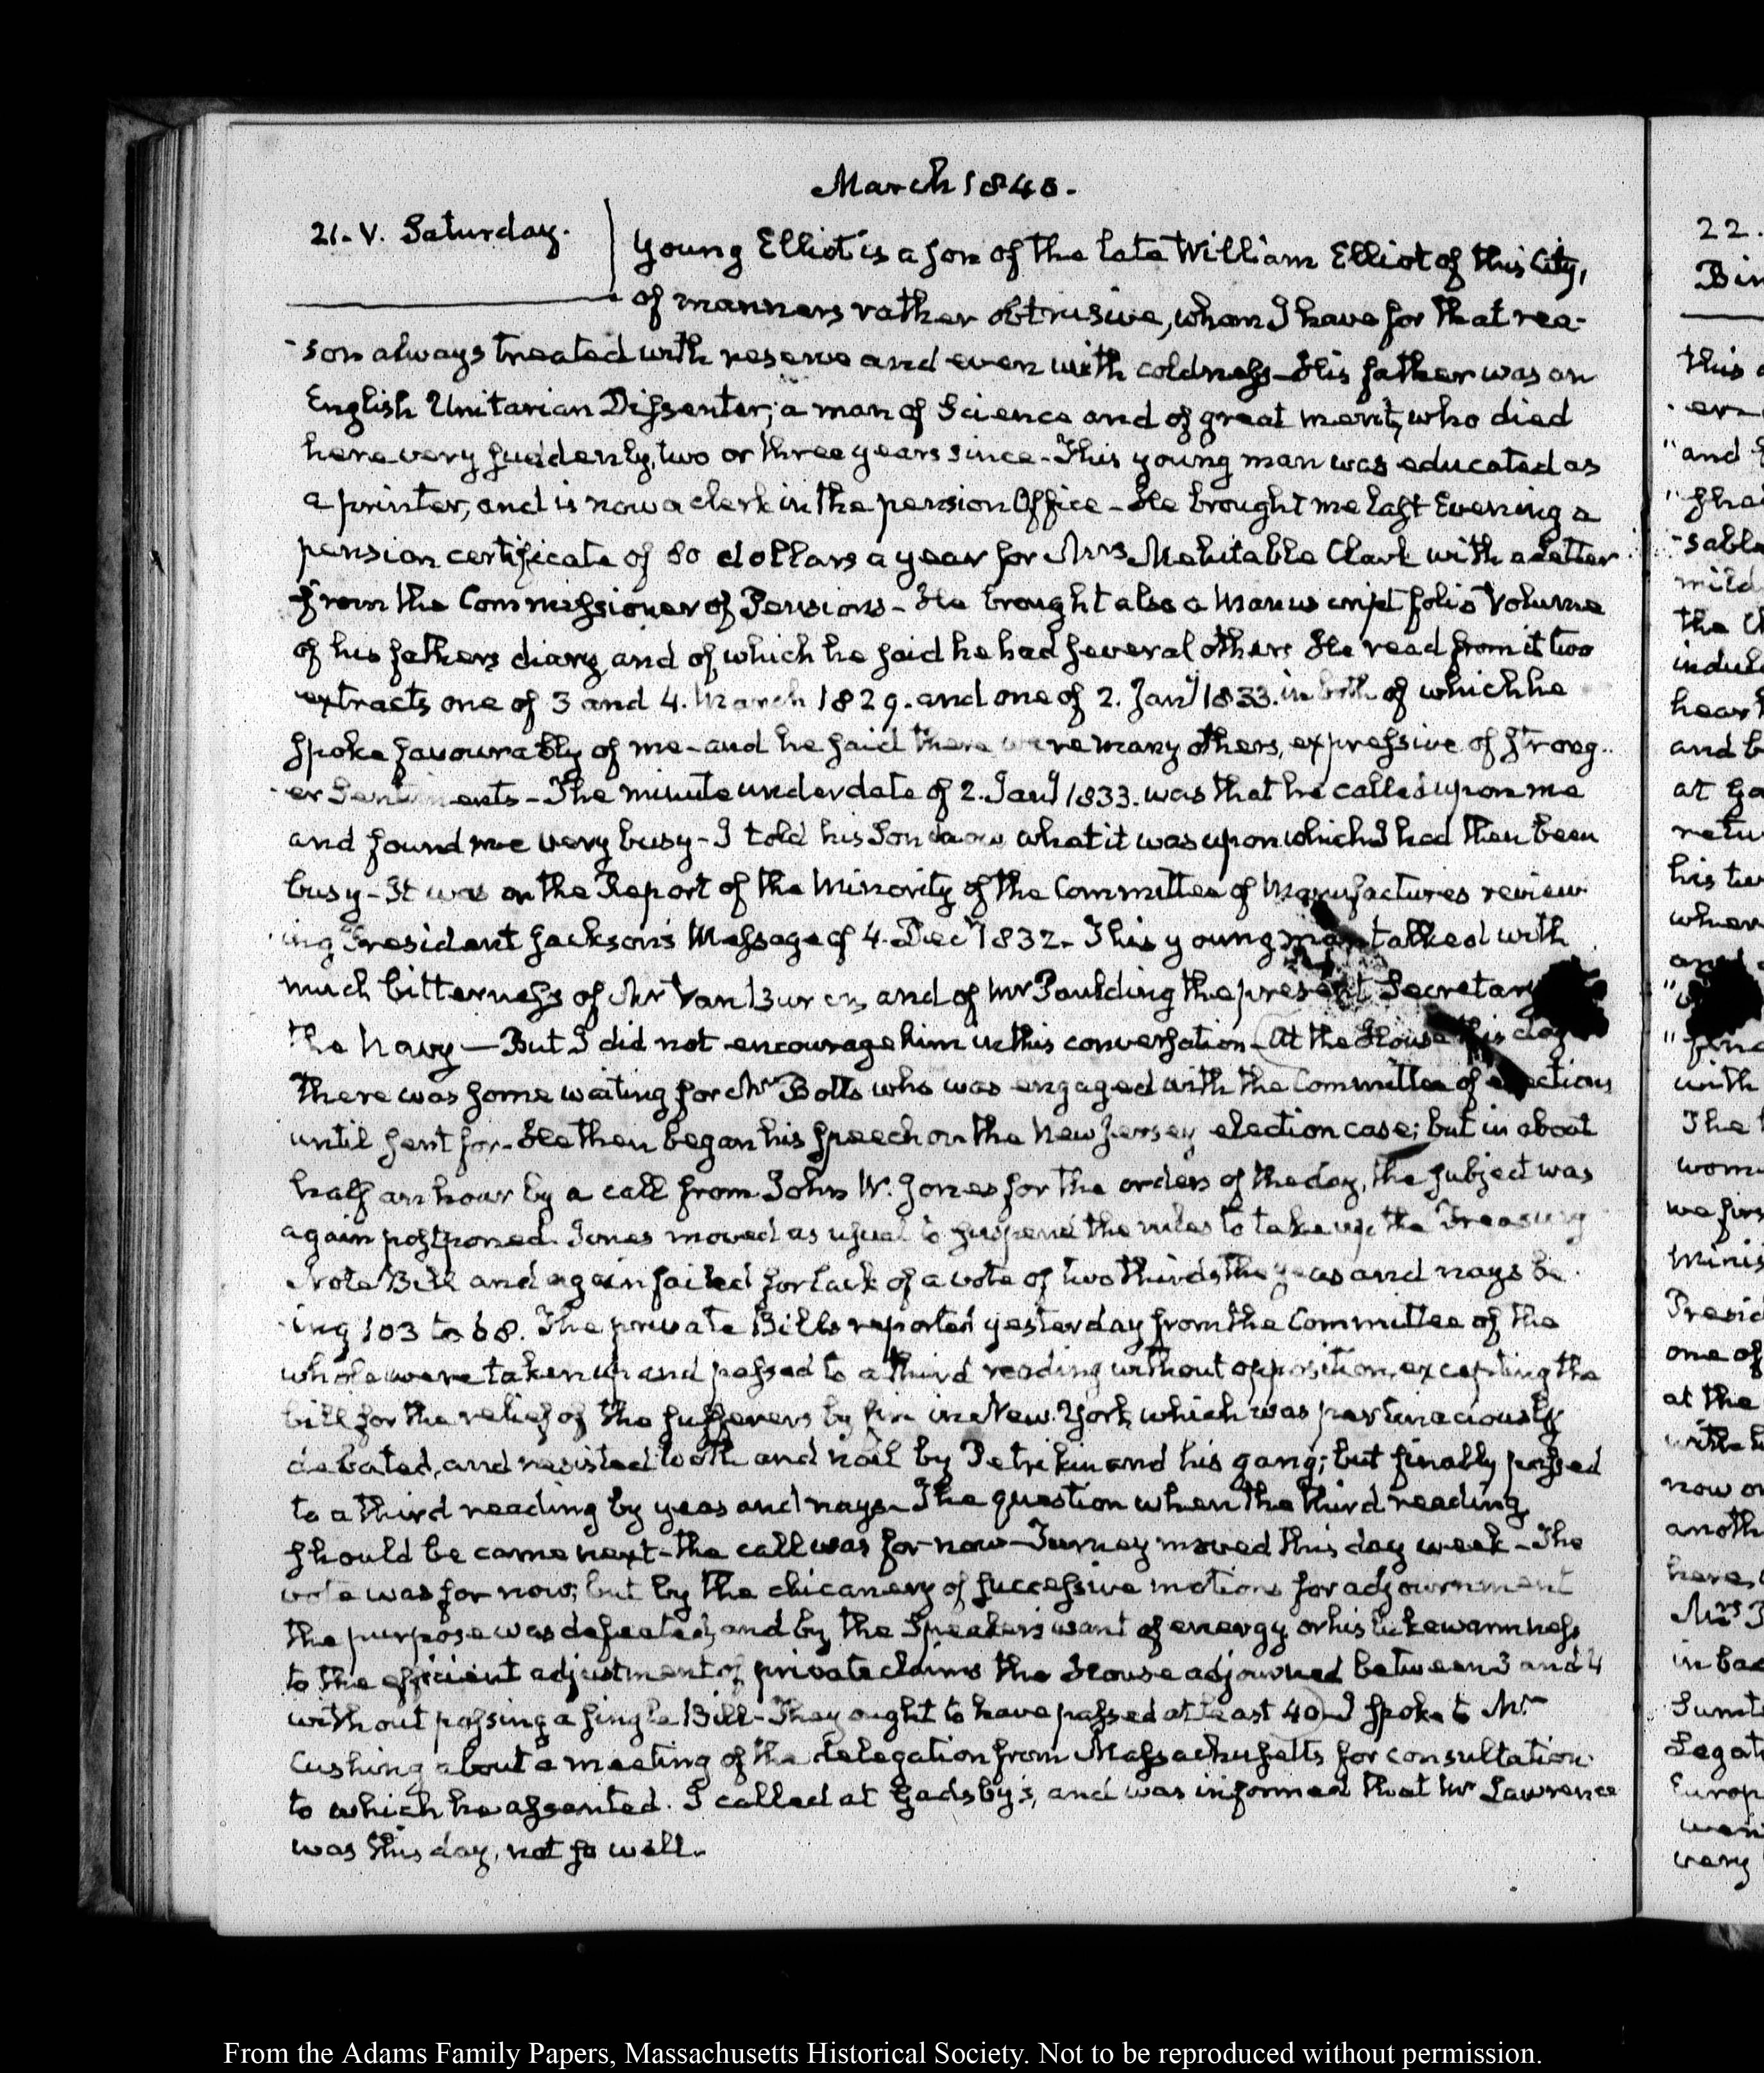 March 1840.
21. V. Saturday.
Young Elliot is a son of the late William Elliot of this City,
of manners rather obtrusive, whom I have for that rea-
-son always treated with reserve and even with coldness - His father was an
English Unitarian Dissenter; a man of Science and of great merit, who died
here very suddenly, two or three years since - This young man was educated as
a printer, and is now a clerk in the pension Office - He brought me last Evening a
pension certificate of 80 dollars a year for Mrs Mehitable Clark with a letter
from the Commissioner of Pensions - He brought also a Manuscript folio Volume
of his fathers diary, and of which he said he had several others He read from it two
extracts one of 3 and 4. March 1829. and one of 2. Jany 1833. in both of which he
spoke favourably of me - and he said there were many others, expressive of strong-
-er Sentiments - The minute under date of 2. Jany 1833. was that he called upon me
and found me very busy - I told his Son what it was upon which I had then been
busy - It was on the Report of the Minority of the Committee of Manufactures review
-ing President Jackson's Message of 4. Decr 1832 - This young man talked with
much bitterness of Mr Van Buren, and of Mr Paulding the present Secretary
the Navy — But I did not encourage him in this conversation - At the House this day
there was some waiting for Mr Botts who was engaged with the Committee of elections
until sent for - He then began his speech on the New Jersey election case; but in about
half an hour by a call from John W. Jones for the orders of the day, the subject was
again postponed. Jones moved as usual to suspend the rules to take up the Treasury
Note Bill and again failed for lack of a vote of two thirds, the yeas and nays be-
-ing 103 to 68. The private Bills reported yesterday from the Committee of the
whole were taken up and passed to a third reading without opposition, excepting the
bill for the relief of the sufferers by fire in New-York, which was pertinaciously
debated, and resisted tooth and nail by Petrikin and his gang; but finally passed
to a third reading by yeas and nays - The question when the third reading
should be came next - the call was for now - Turney moved this day week - The
vote was for now; but by the chicanery of successive motions for adjournment
the purpose was defeated, and by the Speakers want of energy or his lukewarmness
to the efficient adjustment of private claims the House adjourned between 3 and 4
without passing a single Bill - They ought to have passed at least 40 - I spoke to Mr
Cushing about a meeting of the delegation from Massachusetts for consultation
to which he assented. I called at Gadsby's, and was informed that Mr Lawrence
was this day, not so well.
22.
Bin
this
and
mild
the
hear
and b
at
his
wher
with
The
wom
Minis
Presid
one of
at the
now
anoth
here
in
Legat
Europ
very
From the Adams Family Papers, Massachusetts Historical Society. Not to be reproduced without permission.